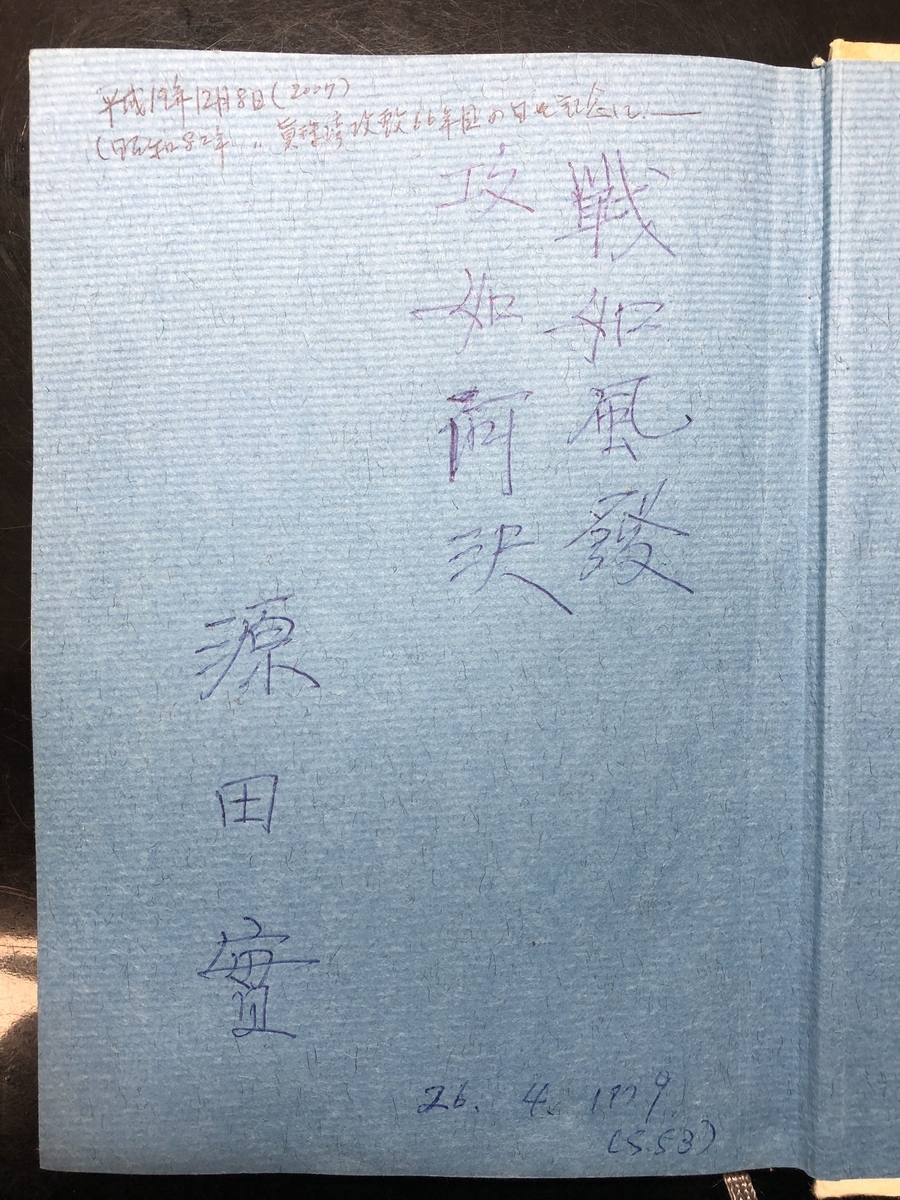 平成19年12月8日(2007)
(昭和82年 〃 眞珠湾攻撃66年目の日を記念に.
戦如風發
攻如河決
源田實
26. 4. 1979
(S.53)